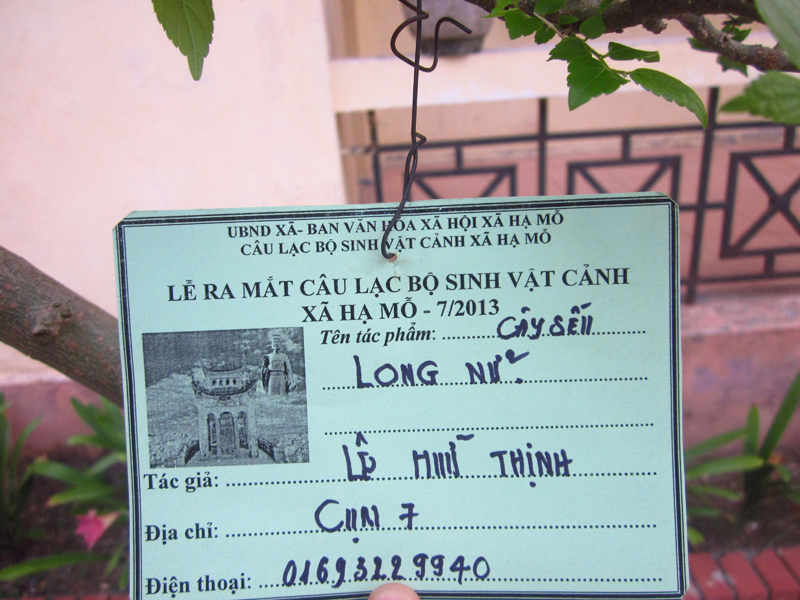 UBND XÃ- BAN VĂN HÓA XÃ HỘI XÃ HẠ MỖ
CÂU LẠC BỘ SINH VẬT CẢNH XÃ HẠ MỖ
LỄ RA MẮT CÂU LẠC BỘ SINH VẬT CẢNH
XÃ HẠ MỖ - 7/2013
Tên tác phẩm: CÂY SẾU
LONG NỮ
Tác giả: LÊ HỮU THỊNH
Địa chỉ: CỤM 7
Điện thoại: 01693229940